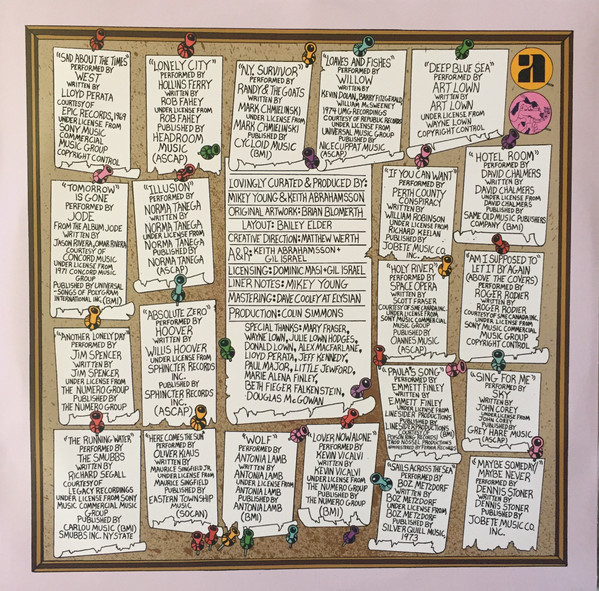 "SAD ABOUT THE TIMES"
PERFORMED BY
WEST
WRITTEN BY
LLOYD PERATA
COURTESY OF
EPIC RECORDS, 1969
UNDER LICENSE FROM
SONY MUSIC
COMMERCIAL
MUSIC GROUP
COPYRIGHT CONTROL
"LONELY CITY"
PERFORMED BY
HOLLINS FERRY
WRITTEN BY
ROB FAHEY
UNDER LICENSE FROM
ROB FAHEY
PUBLISHED BY
HEADROOM
MUSIC
(ASCAP)
"N.Y. SURVIVOR"
PERFORMED BY
RANDY & THE GOATS
WRITTEN BY
MARK CHMIELINSKI
UNDER LICENSE FROM
MARK CHMIELINSKI
PUBLISHED BY
CYCLOID MUSIC
(BMI)
"LOAVES AND FISHES"
PERFORMED BY
WILLOW
WRITTEN BY
KEVIN DOLAN, BARRY FITZGERALD
WILLIAM McSWEENEY
1974 UMG RECORDINGS
COURTESY OF REPUBLIC RECORDS
UNDER LICENSE FROM
UNIVERSAL MUSIC GROUP
PUBLISHED BY
NICECUPPAT MUSIC
(ASCAP)
"DEEP BLUE SEA"
PERFORMED BY
ART LOWN
WRITTEN BY
ART LOWN
UNDER LICENSE FROM
WAYNE LOWN
COPYRIGHT CONTROL
a
"TOMORROW"
IS GONE
PERFORMED BY
JODE
FROM THE ALBUM JODE
WRITTEN BY
JASON RIVERA, OMAR RIVERA
COURTESY OF
CONCORD MUSIC
UNDER LICENSE FROM
1971 CONCORD MUSIC
GROUP
PUBLISHED BY UNIVERSAL
-SONGS OF POLYGRAM
INTERNATIONAL INC. (BMI)
"ILLUSION"
PERFORMED BY
NORMA TANEGA
WRITTEN BY
NORMA TANEGA
UNDER LICENSE FROM
NORMA TANEGA
PUBLISHED BY
NORMA TANEGA
(ASCAP)
LOVINGLY CURATED & PRODUCED BY:
MIKEY YOUNG & KEITH ABRAHAMSSON
ORIGINAL ARTWORK: BRIAN BLOMERTH
LAYOUT: BAILEY ELDER
CREATIVE DIRECTION: MATTHEW WERTH
A&R: KEITH ABRAHAMSSON +
GIL ISRAEL
LICENSING: DOMINIC MASI + GIL ISRAEL
LINER NOTES: MIKEY YOUNG
MASTERING: DAVE COOLEY AT ELYSIAN
PRODUCTION: COLIN SIMMONS
SPECIAL THANKS: MARY FRASER,
WAYNE LOWN, JULIE LOWN HODGES,
DONALD LOWN, ALEX MACFARLANE,
LLOYD PERATA, JEFF KENNEDY,
PAUL MAJOR, LITTLE JEWFORD,
MARIE ALENA FINLEY,
BETH FIEGER FALKENSTEIN,
DOUGLAS McGOWAN
"IF YOU CAN WANT"
PERFORMED BY
PERTH COUNTY
CONSPIRACY
WRITTEN BY
WILLIAM ROBINSON
UNDER LICENSE FROM
RICHARD KEELAN
PUBLISHED BY
JOBETE MUSIC CO.
INC.
"HOTEL ROOM"
PERFORMED BY
DAVID CHALMERS
WRITTEN BY
DAVID CHALMERS
UNDER LICENSE FROM
DAVID CHALMERS
PUBLISHED BY
SAME OLD MUSIC PUBLISHERS
COMPANY (BMI)
"HOLY RIVER"
PERFORMED BY
SPACE OPERA
WRITTEN BY
SCOTT FRASER
COURTESY OF SME CANADA INC.
UNDER LICENSE FROM
SONY MUSIC COMMERCIAL
MUSIC GROUP
PUBLISHED BY
OANNES MUSIC
(ASCAP)
"AM I SUPPOSED TO"
LET IT BY AGAIN
(ABOVE THE COVERS)
PERFORMED BY
ROGER RODIER
WRITTEN BY
ROGER RODIER
COURTESY OF SME CANADA INC.
UNDER LICENSE FROM
SONY MUSIC COMMERCIAL
MUSIC GROUP
COPYRIGHT CONTROL
"ANOTHER LONELY DAY"
PERFORMED BY
JIM SPENCER
WRITTEN BY
JIM SPENCER
UNDER LICENSE FROM
THE NUMERO GROUP
PUBLISHED BY
THE NUMERO GROUP
"ABSOLUTE ZERO"
PERFORMED BY
HOOVER
WRITTEN BY
WILLIS HOOVER
UNDER LICENSE FROM
SPHINCTER RECORDS
INC.
PUBLISHED BY
SPHINCTER RECORDS
INC.
(ASCAP)
"PAULA'S SONG"
PERFORMED BY
EMMETT FINLEY
WRITTEN BY
EMMETT FINLEY
UNDER LICENSE FROM
LINESIDER PRODUCTIONS
PUBLISHED BY
LINESIDER PRODUCTIONS
"SING FOR ME"
PERFORMED BY
SKY
WRITTEN BY
JOHN COREY
UNDER LICENSE FROM
JOHN COREY
PUBLISHED BY
GREY HARE MUSIC
(ASCAP)
"THE RUNNING WATER"
PERFORMED BY
THE SMUBBS
WRITTEN BY
RICHARD SEGALL
COURTESY OF
LEGACY RECORDINGS
UNDER LICENSE FROM SONY
MUSIC COMMERCIAL MUSIC
GROUP
PUBLISHED BY
CARLOU MUSIC (BMI)
SMUBBS INC. NY STATE
"HERE COMES THE SUN"
PERFORMED BY
OLIVER KLAUS
WRITTEN BY
MAURICE SINGFIELD JR.
UNDER LICENSE FROM
MAURICE SINGFIELD
PUBLISHED BY
EASTERN TOWNSHIP
MUSIC
(SOCAN)
"WOLF"
PERFORMED BY
ANTONIA LAMB
WRITTEN BY
ANTONIA LAMB
UNDER LICENSE FROM
ANTONIA LAMB
PUBLISHED BY
ANTONIA LAMB
(BMI)
"LOVER NOW ALONE"
PERFORMED BY
KEVIN VICALVI
WRITTEN BY
KEVIN VICALVI
UNDER LICENSE FROM
THE NUMERO GROUP
PUBLISHED BY
THE NUMERO GROUP
(BMI)
"SAILS ACROSS THE SEA"
PERFORMED BY
BOZ METZDORF
WRITTEN BY
BOZ METZDORF
UNDER LICENSE FROM
BOZ METZDORF
PUBLISHED BY
SILVER QUILL MUSIC
1973
"MAYBE SOMEDAY"
MAYBE NEVER
PERFORMED BY
DENNIS STONER
WRITTEN BY
DENNIS STONER
PUBLISHED BY
JOBETE MUSIC CO.
INC.